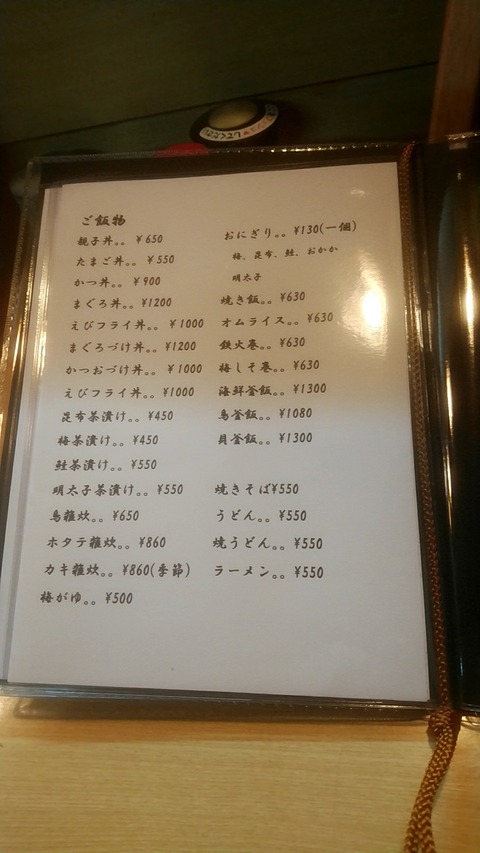 ご飯物
親子丼。。¥650
たまご丼。。¥550
かつ丼。。¥900
まぐろ丼。。¥1200
えびフライ丼。。¥1000
まぐろづけ丼。。¥1200
かつおづけ丼。。¥1000
えびフライ丼。。¥1000
昆布茶漬け。。¥450
梅茶漬け。。¥450
鮭茶漬け。。¥550
明太子茶漬け。。¥550
鳥雑炊。。¥650
ホタテ雑炊。。¥860
カキ雑炊。。¥860(季節)
梅がゆ。。¥500
おにぎり。。¥130(一個)
梅、昆布、鮭、おかか
明太子
焼き飯。。¥630
オムライス。。¥630
鉄火巻。。¥630
梅しそ巻。。¥630
海鮮釜飯。。¥1300
鳥釜飯。。¥1080
貝釜飯。。¥1300
焼きそば¥550
うどん。。¥550
焼うどん。。¥550
ラーメン。。¥550